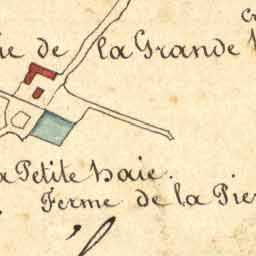 ie de la Grande
a Petite haie.
Ferme de la Pie